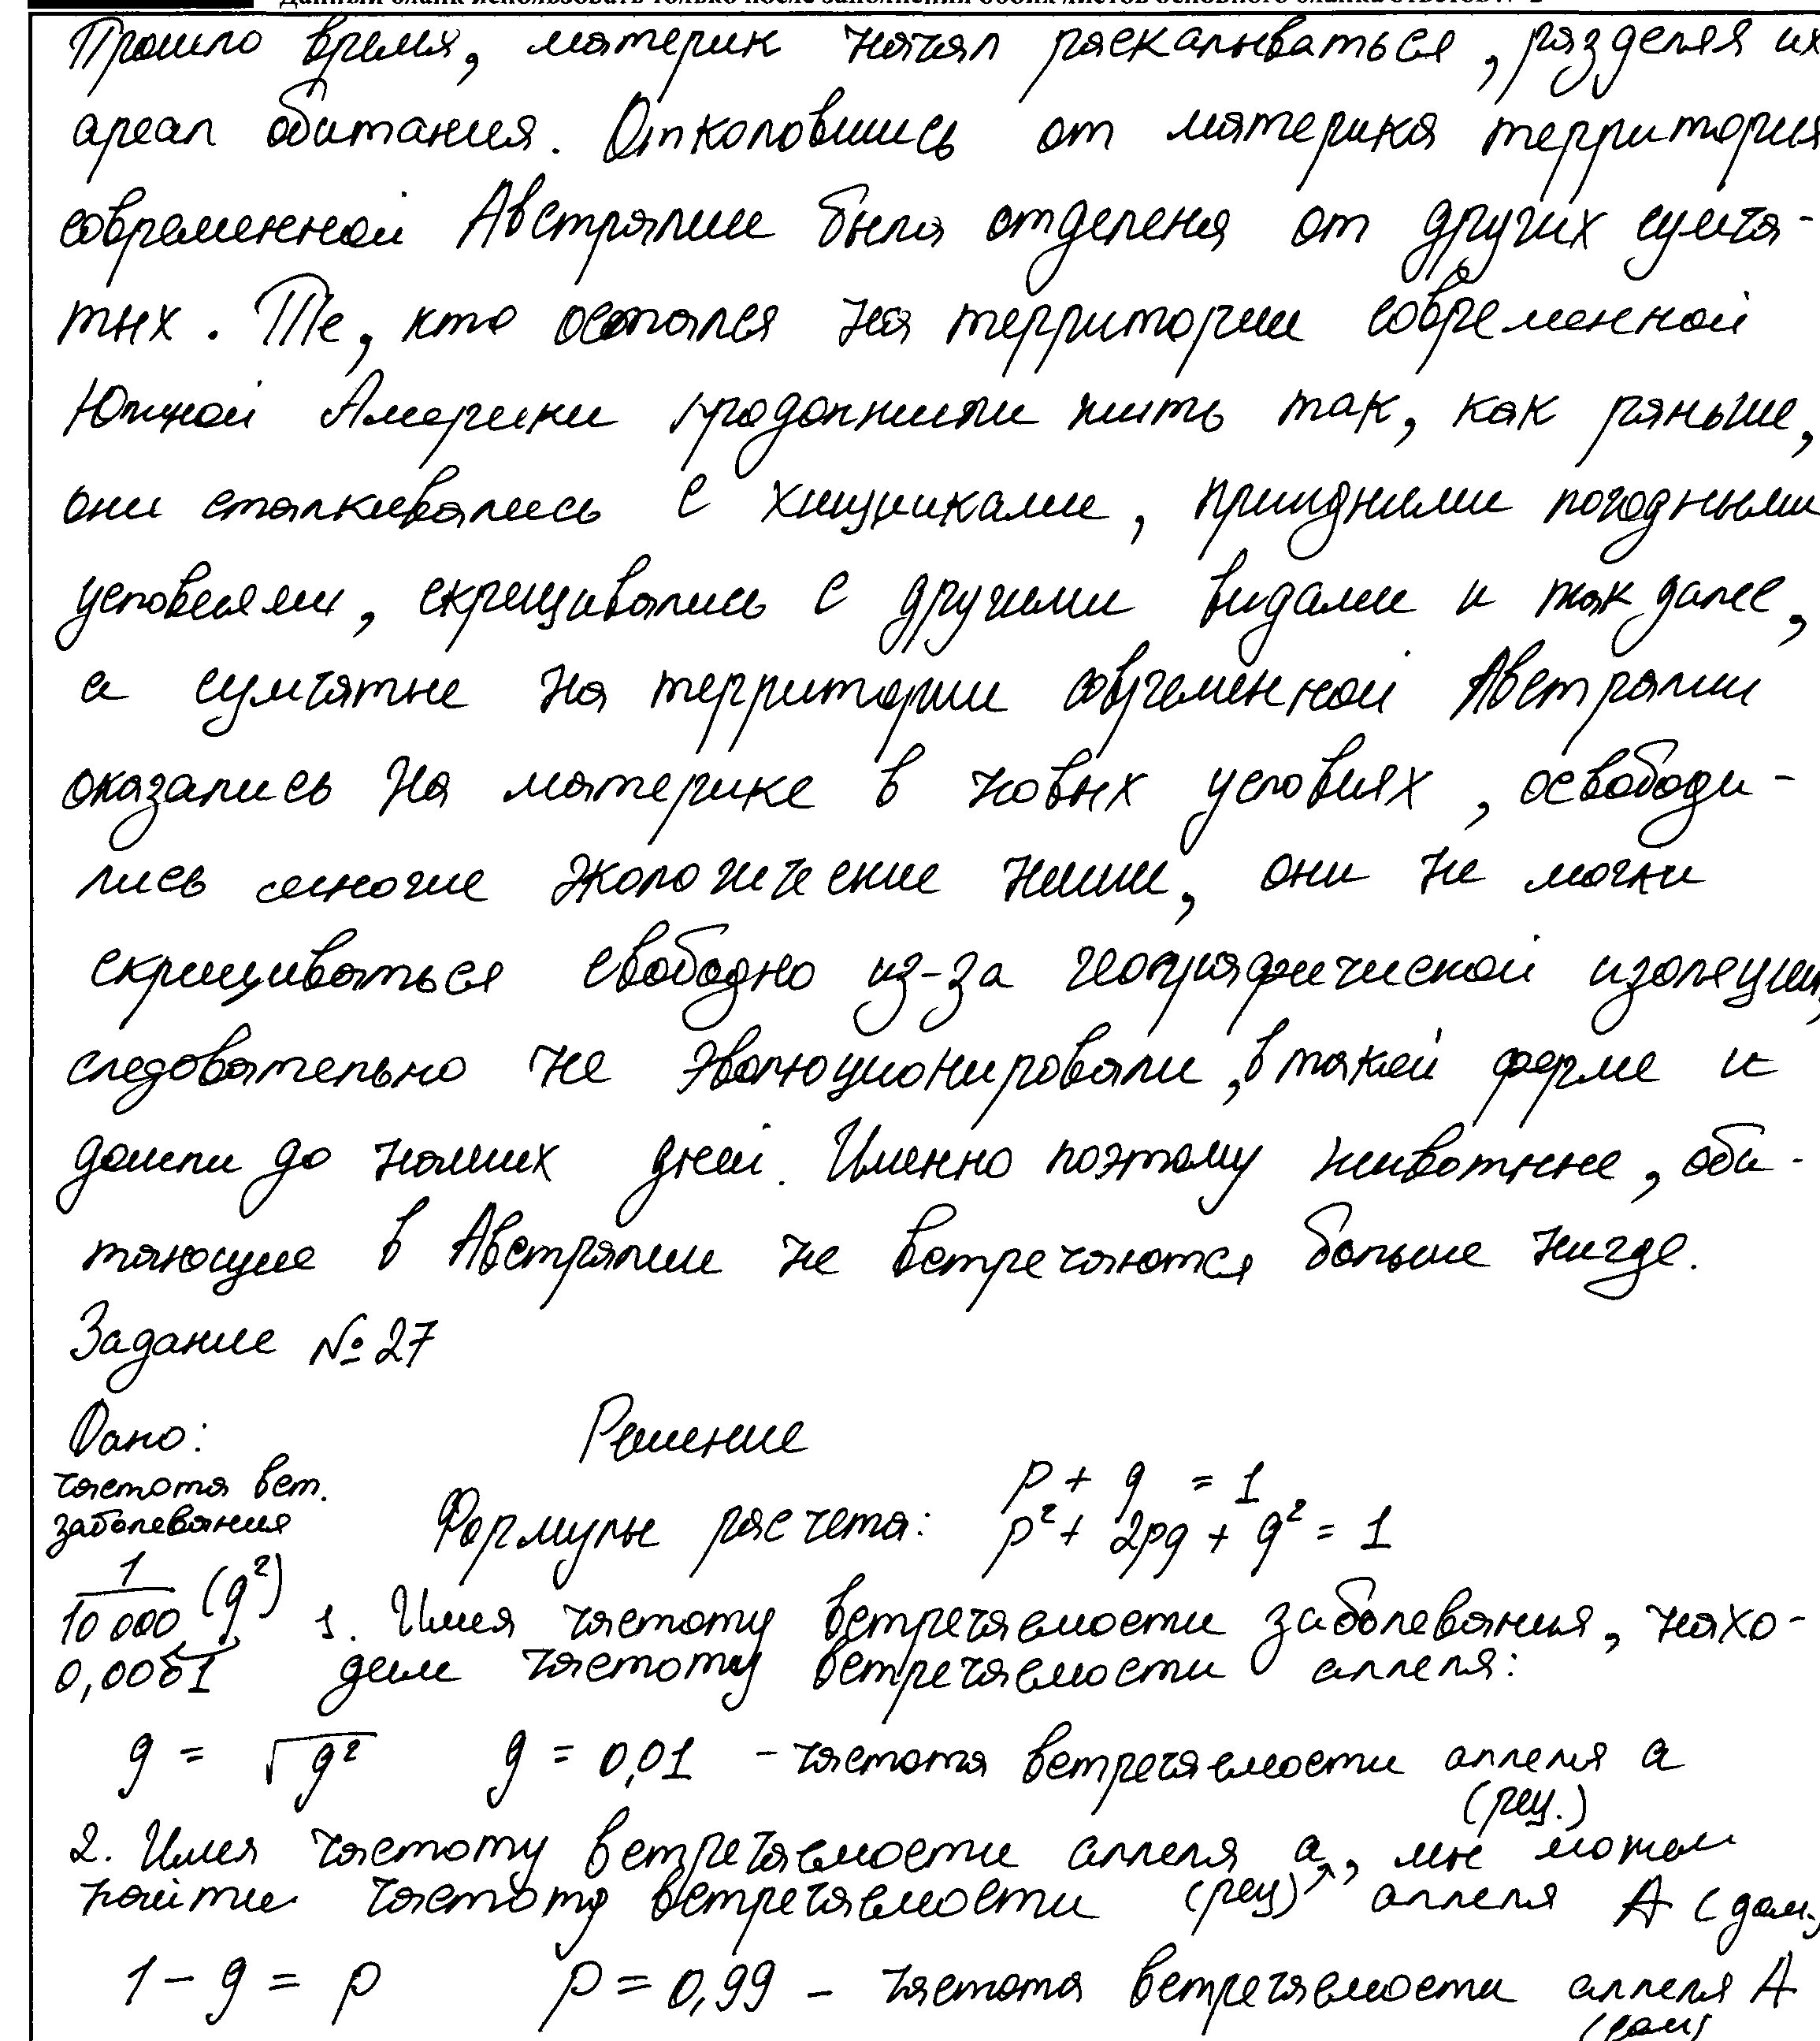 Данный бланк использовать только после заполнения обоих листов основного бланка ответов № 2
Прошло время, материк начал раскалываться, разделяя их
ареал обитания. Отколовшись от материка территория
современной Австралии была отделена от других сумча-
тых. Те, кто остался на территории современной
Южной Америки продолжили жить так, как раньше,
они сталкивались с хищниками, погодными
условиями, скрещивались с другими видами и так далее,
а сумчатые на территории современной Австралии
оказались на материке в новых условиях, освободи-
лись многие экологические ниши, они не могли
скрещиваться свободно из-за географической изоляции,
следовательно не эволюционировали, в такой форме и
дошли до наших дней. Именно поэтому животные, оби-
тающие в Австралии не встречаются больше нигде.
Задание № 27
Дано: Решение
частота вст. p + q = 1
заболевания Формулы расчета: p² + 2pq + q² = 1
1/10 000 (q²) 1. Имея частоту встречаемости заболевания, нахо-
0,0001 дим частоту встречаемости аллеля:
q = √q² q = 0,01 – частота встречаемости аллеля a
(рец.)
2. Имея частоту встречаемости аллеля a, мы можем
найти частоту встречаемости (рец) аллеля A (дом.)
1 – q = p p = 0,99 – частота встречаемости аллеля A
(дом)